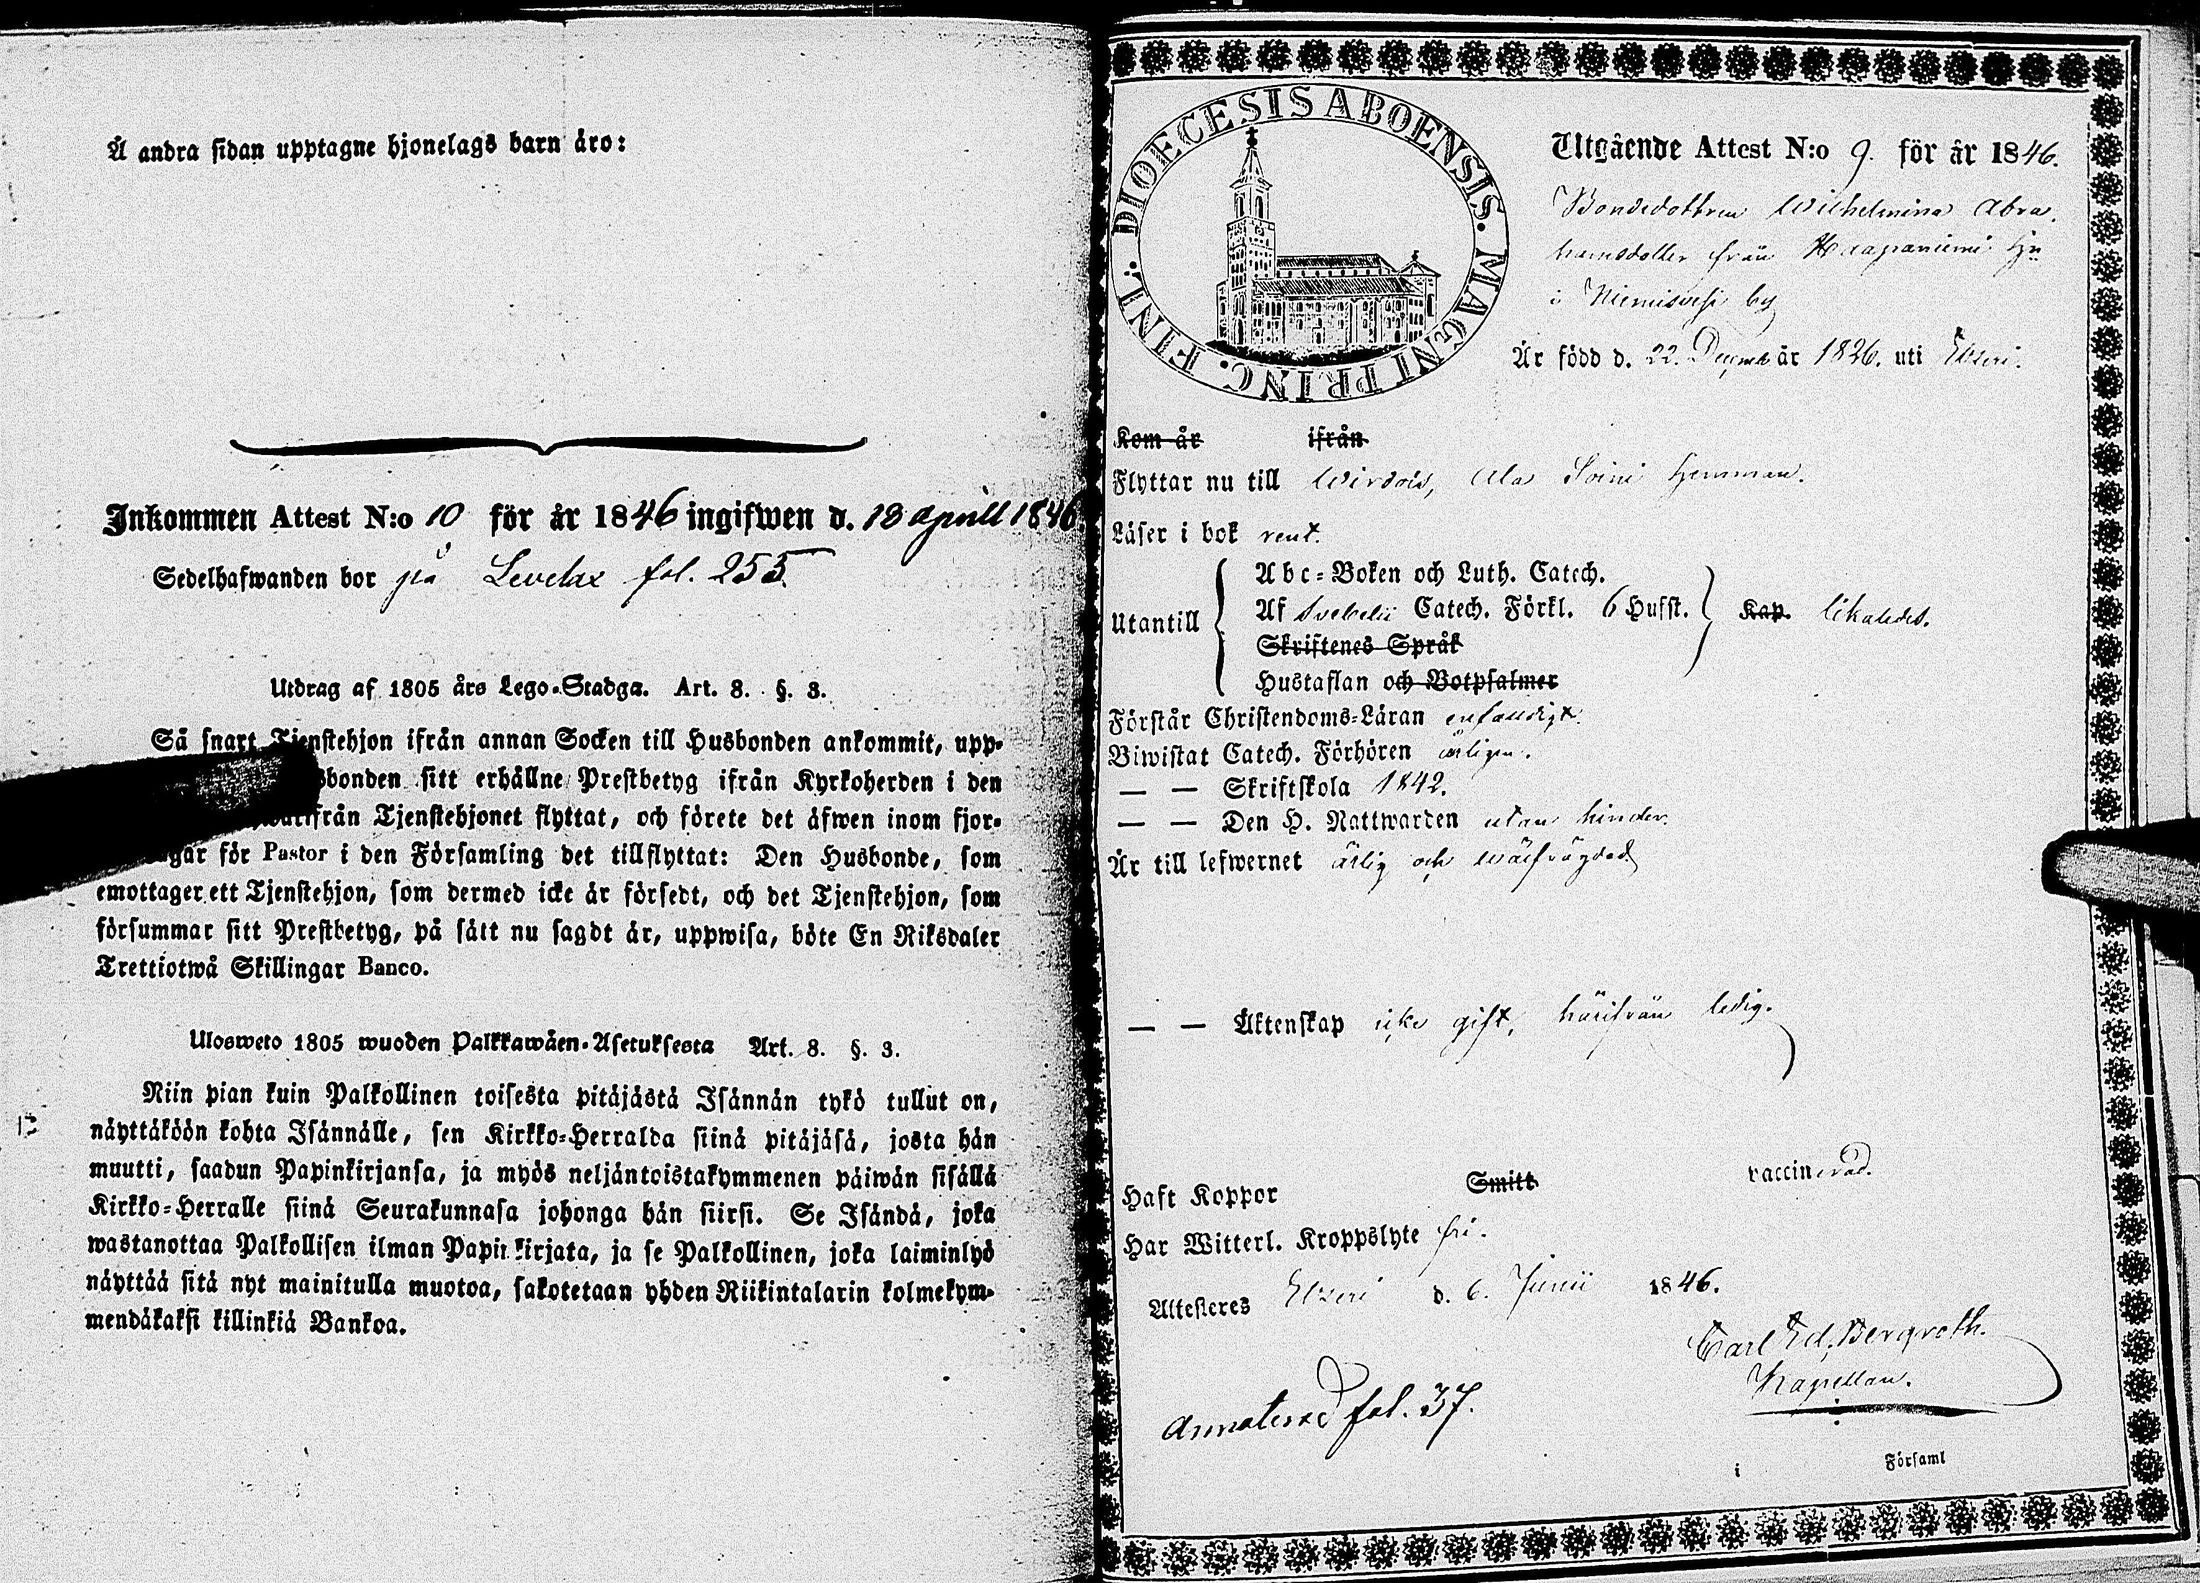 Å andra sidan upptagne hjonelags barn äro:
Inkommen Attest N:o 10 för år 1846 ingifwen d. 18 april 1846
Sedelhafwanden bor på fol. 255.
Utdrag af 1805 års Lego-Stadga. Art. 8. §. 3.
Så snart Tjenstehjon ifrån annan Socken till Husbonden ankommit, upp-
sbonden sitt erhållne Prestbetyg ifrån Kyrkoherden i den
ifrån Tjenstehjonet flyttat, och förete det äfwen inom fjor-
gar för Pastor i den Församling det tillflyttat: Den Husbonde, som
emottager ett Tjenstehjon, som dermed icke är försedt, och det Tjenstehjon, som
försummar sitt Prestbetyg, på sätt nu sagdt är, uppwisa, böte En Riksdaler
Trettiotwå Skillingar Banco.
Ulosweto 1805 wuoden Palkkawäen-Asetuksesta Art. 8. §. 3.
Niin pian kuin Palkollinen toisesta pitäjästä Isännän tykö tullut on,
näyttäköön kohta Isännälle, sen Kirkko-Herralda siinä pitäjäsä, josta hän
muutti, saadun Papinkirjansa, ja myös neljäntoistakymmenen päiwän sisällä
Kirkko-Herralle siinä Seurakunnasa johonga hän siirsi. Se Isändä, joka
wastanottaa Palkollisen ilman Papinkirjata, ja se Palkollinen, joka laiminlyö
näyttää sitä nyt mainitulla muotoa, sakotetaan yhden Riikintalarin kolmekym-
mendäkaksi killinkiä Bankoa.
DIOECESIS ABOENSIS. MAGNI PRINC. FINL.
Utgående Attest N:o 9. för år 1846.
Bondedottren Wilhelmina Abra-
hamsdotter från Haapaniemi Hn
i Niemisvesi by
Är född d. 22. Decemb. år 1826. uti Etseri.
Kom år ifrån
Flyttar nu till Wirdois, Ala Soini Hemman.
Läser i bok rent.
Utantill
Abc-Boken och Luth. Catech.
Af Svebelii Catech. Förkl. 6 Husst. Kap. likaledes.
Skriftenes Språk
Hustaflan och Botpsalmer
Förstår Christendoms-Läran enfaldigt.
Biwistat Catech. Förhören årligen.
— — Skriftskola 1842.
— — Den H. Nattwarden utan hinder.
Är till lefwernet ärlig och wälfrägdad
— — Äktenskap icke gift, härifrån ledig.
Haft Koppor Smitt vaccinerad.
Har Witterl. Kroppslyte fri.
Attesteres Etseri d. 6. Junii 1846.
Carl Ed. Bergroth.
Kapellan.
Annoterad fol. 37.
i Församl